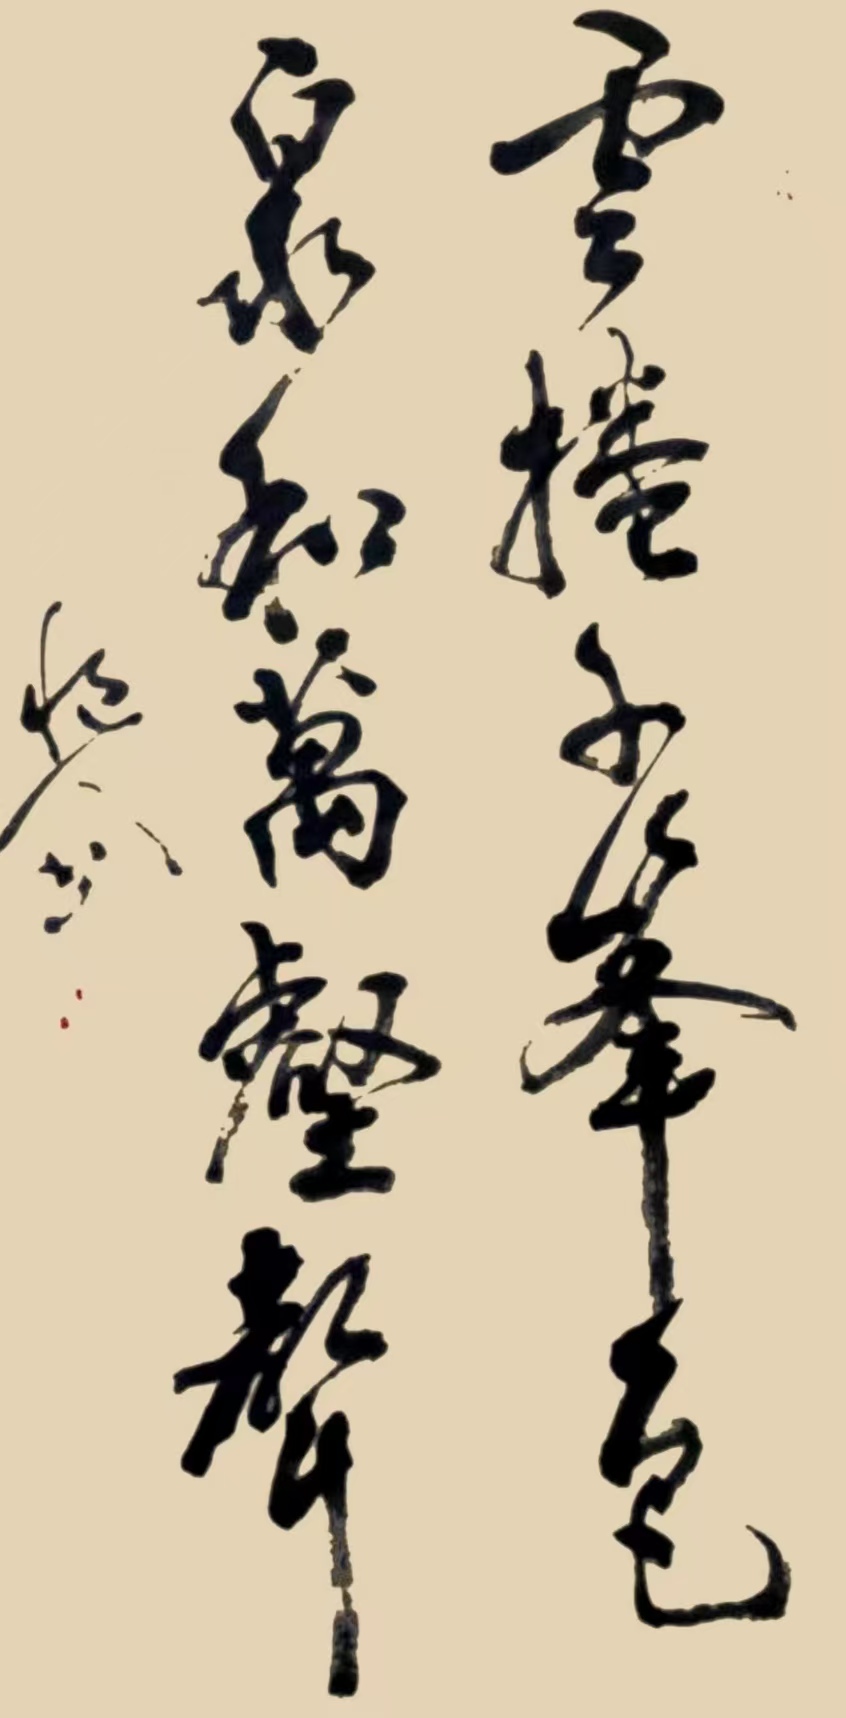 雲捲千峯色
泉和萬壑聲